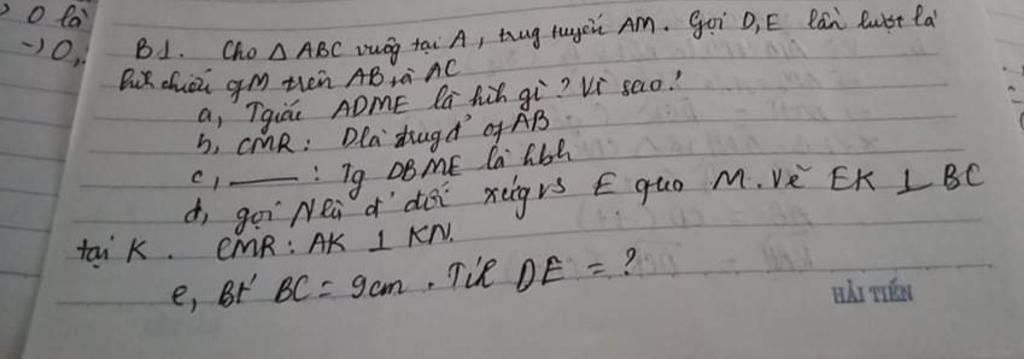 O là
→ O,
B1. Cho Δ ABC vuôg tại A, trug tuyến AM. Gọi D, E lần lượt là
hìh chiếu of M trên AB và AC
a, Tgiác ADME là hìh gì? Vì sao?
b, CMR: D là trug đ' of AB
c, ___ : Tg DBME là hbh
d, gọi N là đ' đối xứg vs E qua M. Vẽ EK ⊥ BC
tại K. CMR: AK ⊥ KN.
e, Bt' BC = 9cm. Tíh DE = ?
HẢI TIẾN